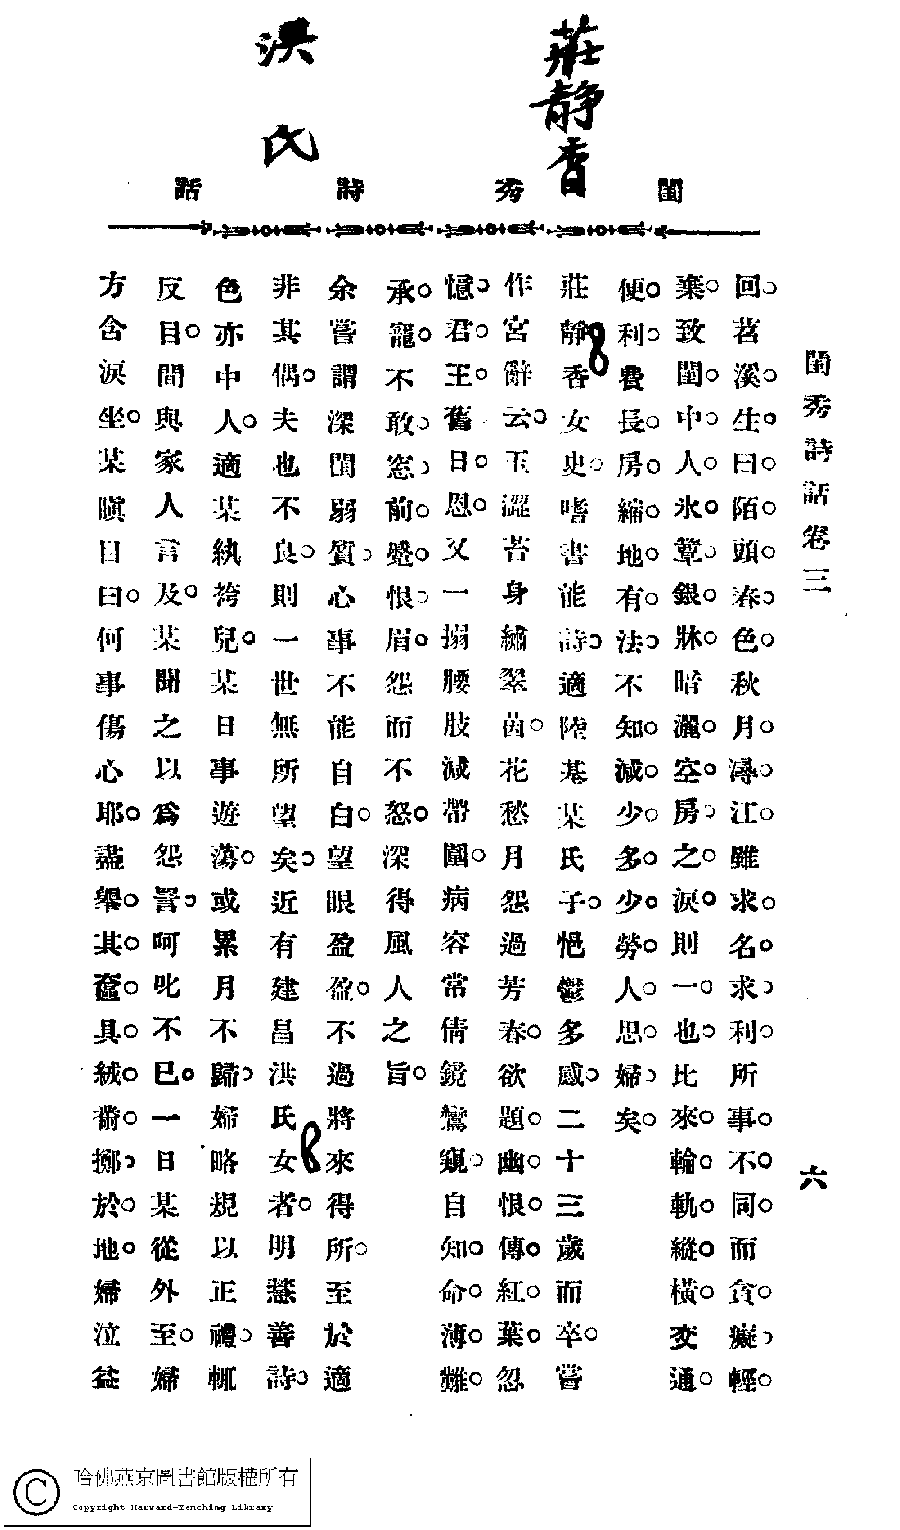 莊靜香
洪氏
閨秀詩話
閨秀詩話卷三
六
回苕溪生曰陌頭春色秋月潯江雖求名求利所事不同而貪癡輕
棄致閨中人氷簟銀牀暗灑空房之淚則一也比來輪軌縱橫交通
便利費長房縮地有法不知減少多少勞人思婦矣
莊靜香女史嗜書能詩適陸基某氏子悒鬱多感二十三歲而卒嘗
作宮辭云玉澀苔身繡翠茵花愁月怨過芳春欲題幽恨傳紅葉忽
憶君王舊日恩又一搦腰肢減帶圍病容常倩鏡鸞窺自知命薄難
承寵不敢窓前蹙恨眉怨而不怨深得風人之旨
余嘗謂深閨弱質心事不能自白望眼盈盈不過將來得所至於適
非其偶夫也不良則一世無所望矣近有建昌洪氏女者明慧善詩
色亦中人適某紈袴兒某日事遊蕩或累月不歸婦略規以正禮輒
反目間與家人言及某聞之以爲怨詈呵叱不已一日某從外至婦
方含淚坐某瞋目曰何事傷心耶盡舉其奩具絨黹擲於地婦泣益
哈佛燕京圖書館版權所有
Copyright Harvard-Yenching Library